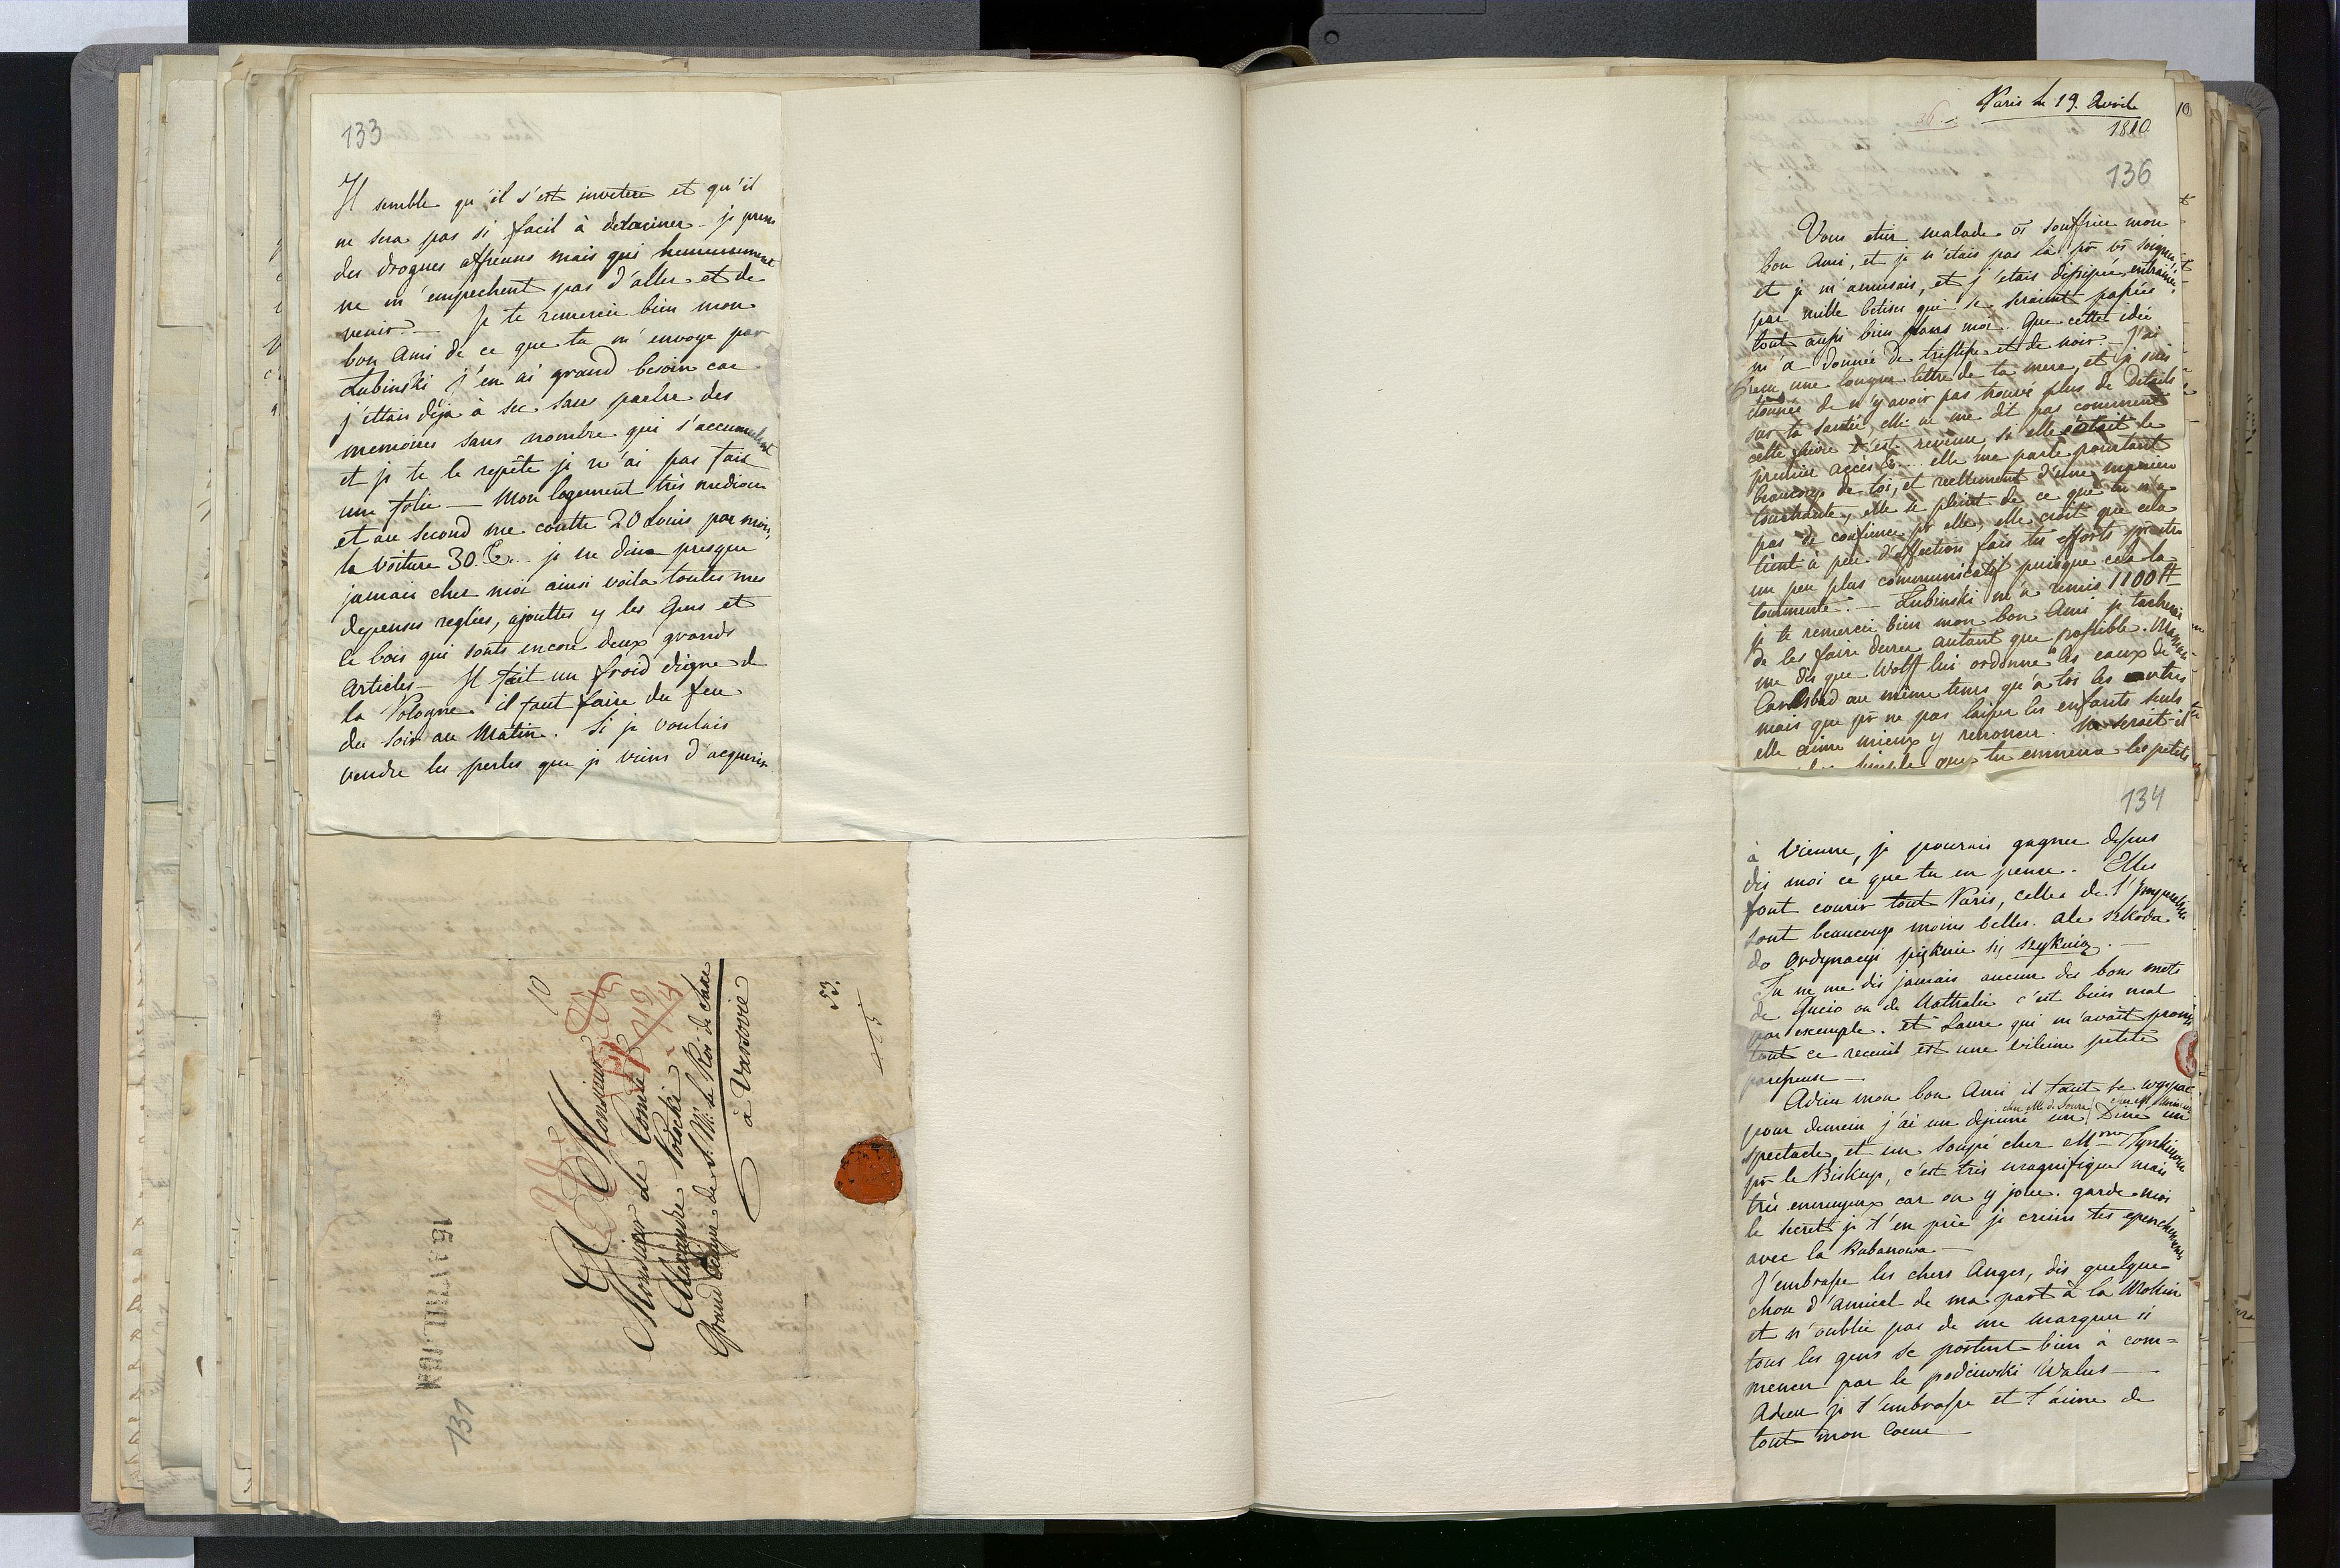 133
Il semble qu'il s'est inveteré et qu'il
ne sera pas si facil à deraciner – je prens
des drogues affreuses mais qui heureusement
ne m'empechent pas d'aller et de
venir. — Je te remercie bien mon
bon Ami de ce que tu m'envoye par
Lubinski j'en ai grand besoin car
j'ettais déja à sec sans parler des
memoires sans nombre qui s'accumulent
et je te le repête je n'ai pas fait
une folie — Mon logement très mediocre
et au second me coutte 20 Louis par mois,
la voiture 30. je ne dine presque
jamais chez moi ainsi voila toutes mes
depenses reglées, ajouttes y les Gens et
le bois qui sonts encore deux grands
articles – Il fait un froid digne de
la Pologne il faut faire du feu
du soir au Matin. Si je voulais
vendre les perles que je viens d'acquerir
10
A Monsieur
Monsieur le Comte
Alexandre Potocki
Grand Ecuyer de S. M. le Roi de Saxe
à Varsovie
53.
16 AVRIL 1810
131
Paris le 19. Avril
1810
136
Vous etiez malade vs souffriez mon
bon Ami, et je n'étais pas là pr vs soigner,
et je m'amusais, et j'étais dissipée, entrainée
par mille betises qui se seraient passées
tout aussi bien sans moi. Que cette idée
m'a donnée de tristesse et de noir. – J'ai
recu une longue lettre de ta mere, et je suis
étonnée de n'y avoir pas trouvé plus de Details
sur ta santée, elle ne me dit pas comment
cette fievre t'est revenue si elle etait le
premier accès &... elle me parle pourtant
beaucoup de toi, et reellement d'une maniere
touchante, elle se plaint de ce que tu n'a
pas de confience pr elle, elle croit que cela
tient à peu d'affection fais tes efforts pr etre
un peu plus communicatif puisque cela la
tourmente. – Lubinski m'a remis 1100 #
je te remercie bien mon bon Ami je tacherai
de les faire durer autant que possible. Maman
me dis que Wolff lui ordonne les eaux de
Carlsbad au même tems qu'à toi les autres
mais que pr ne pas laisser les enfants seuls
elle aime mieux y renoncer. Ne serait-il
simple que tu emmena les petits
134
à Vienne, je pourais gagner dessus
dis moi ce que tu en pense. Elles
font courir tout Paris, celles de l'Imperatrice
sont beaucoup moins belles. ale szkoda
do Ordynacyi pięknie się szykuią. —
Tu ne me dis jamais aucun des bons mots
de Gucio ou de Nathalie c'est bien mal
par exemple. et Laure qui m'avait promis
tout ce receuil est une vilaine petite
paresseuse —
Adieu mon bon Ami il faut se wyspac
pour demain j'ai un dejeuné chez Me de Souza, un Diné un
spectacle, et un soupé chez Mme Tyszkiewicz
pr le Biskup, c'est très magnifique mais
très ennuyeux car on y joue. garde-moi
le secret je t'en prie je crains tes epenchements
avec la Kabanowa —
J'embrasse les chers Anges, dis quelque
chose d'amical de ma part à la
et n'oublie pas de me marquer si
tous les gens se portent bien à com=
mencer par le podczwski Walus —
Adieu je t'embrasse et t'aime de
tout mon Coeur —